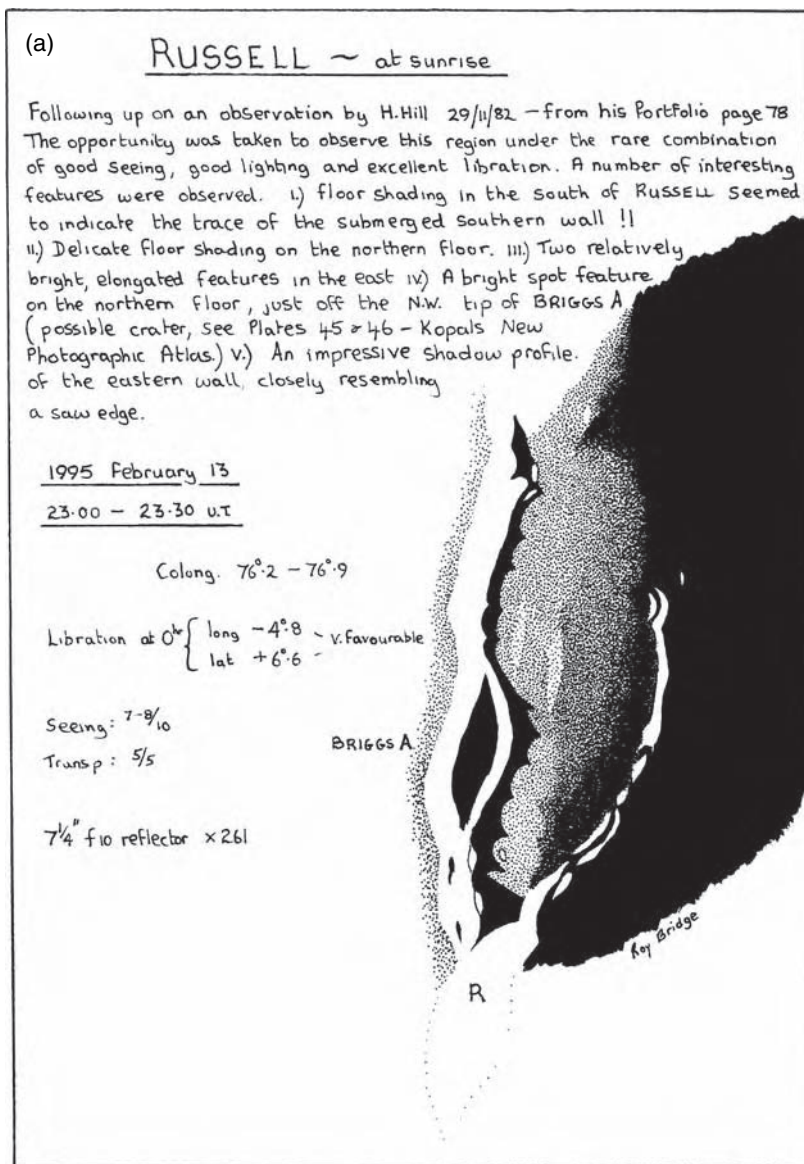 (a)
RUSSELL ~ at sunrise
Following up on an observation by H.Hill 29/11/82 – from his Portfolio page 78
The opportunity was taken to observe this region under the rare combination
of good seeing, good lighting and excellent libration. A number of interesting
features were observed. I.) floor shading in the south of RUSSELL seemed
to indicate the trace of the submerged southern wall !!
II.) Delicate floor shading on the northern floor. III.) Two relatively
bright, elongated features in the east IV.) A bright spot feature
on the northern floor, just off the N.W. tip of BRIGGS A
(possible crater, see Plates 45 & 46 – Kopals New
Photographic Atlas.) V.) An impressive shadow profile.
of the eastern wall, closely resembling
a saw edge.
1995 February 13
23.00 – 23.30 U.T
Colong. 76°.2 – 76°.9
Libration at 0hr { long -4°.8 – V. favourable
lat +6°.6 –
Seeing: 7-8/10
Transp: 5/5
BRIGGS A.
7 1/4" f10 reflector ×261
Roy Bridge
R